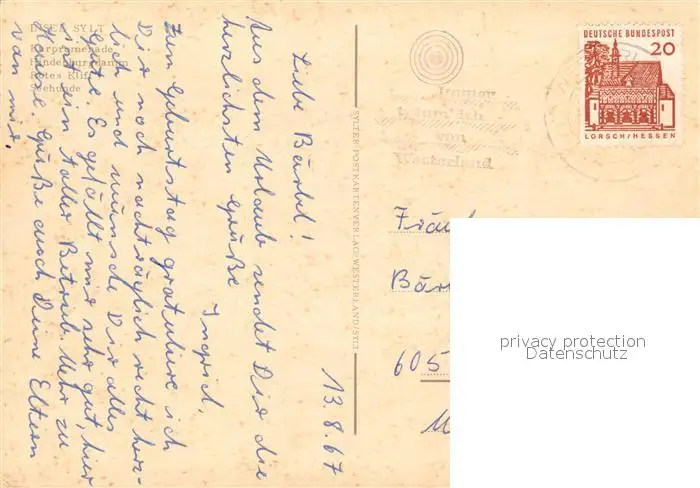 INSEL SYLT
Kurpromenade
Hindenburgdamm
Rotes Kliff
Seehunde
13.8.67
Liebe Bärbel!
Aus dem Urlaub sendet Dir die
herzlichsten Grüße
Ingrid.
Zum Geburtstag gratuliere ich
Dir noch nachträglich recht herz-
lich und wünsche Dir alles
Gute. Es gefällt mir sehr gut, hier
ist ein toller Betrieb. Mehr zu
Hause. Grüße auch Deine Eltern
von mir.
SYLTER POSTKARTENVERLAG · WESTERLAND/SYLT
Immer
träum' ich
von
Westerland
DEUTSCHE BUNDESPOST
20
LORSCH/HESSEN
Fräul
Bär
605
M
privacy protection
Datenschutz